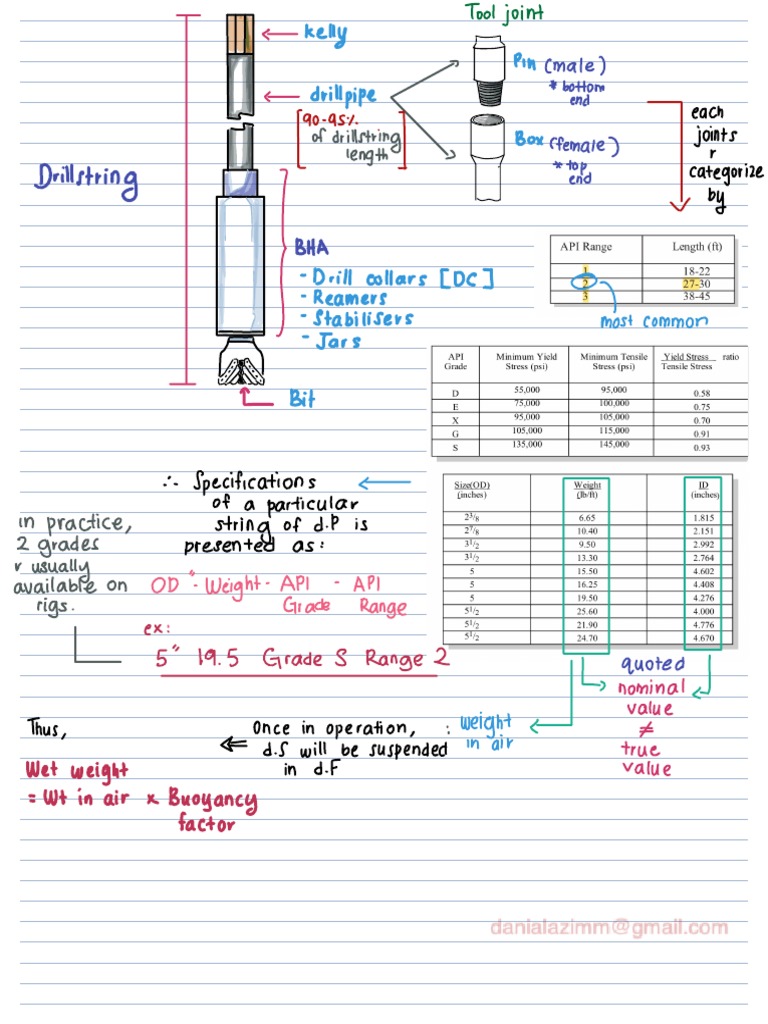 Tool joint
kelly
Pin (male)
* bottom
end
drillpipe
[90-95%
of drillstring
length]
Box (female)
* top
end
each
joints
r
categorize
by
Drillstring
BHA
- Drill collars [DC]
- Reamers
- Stabilisers
- Jars
Bit
API Range Length (ft)
1 18-22
2 27-30
3 38-45
most common
API Grade Minimum Yield Stress (psi) Minimum Tensile Stress (psi) Yield Stress ratio Tensile Stress
D 55,000 95,000 0.58
E 75,000 100,000 0.75
X 95,000 105,000 0.70
G 105,000 115,000 0.91
S 135,000 145,000 0.93
∴ Specifications
of a particular
string of d.P is
presented as:
OD" - Weight - API - API
Grade Range
ex:
5" 19.5 Grade S Range 2
in practice,
2 grades
r usually
available on
rigs.
Size(OD) (inches) Weight (lb/ft) ID (inches)
2 3/8 6.65 1.815
2 7/8 10.40 2.151
3 1/2 9.50 2.992
3 1/2 13.30 2.764
5 15.50 4.602
5 16.25 4.408
5 19.50 4.276
5 1/2 25.60 4.000
5 1/2 21.90 4.776
5 1/2 24.70 4.670
quoted
nominal
value
≠
true
value
: weight
in air
Once in operation,
d.S will be suspended
in d.F
Thus,
Wet weight
= Wt in air x Buoyancy
factor
danialazimm@gmail.com